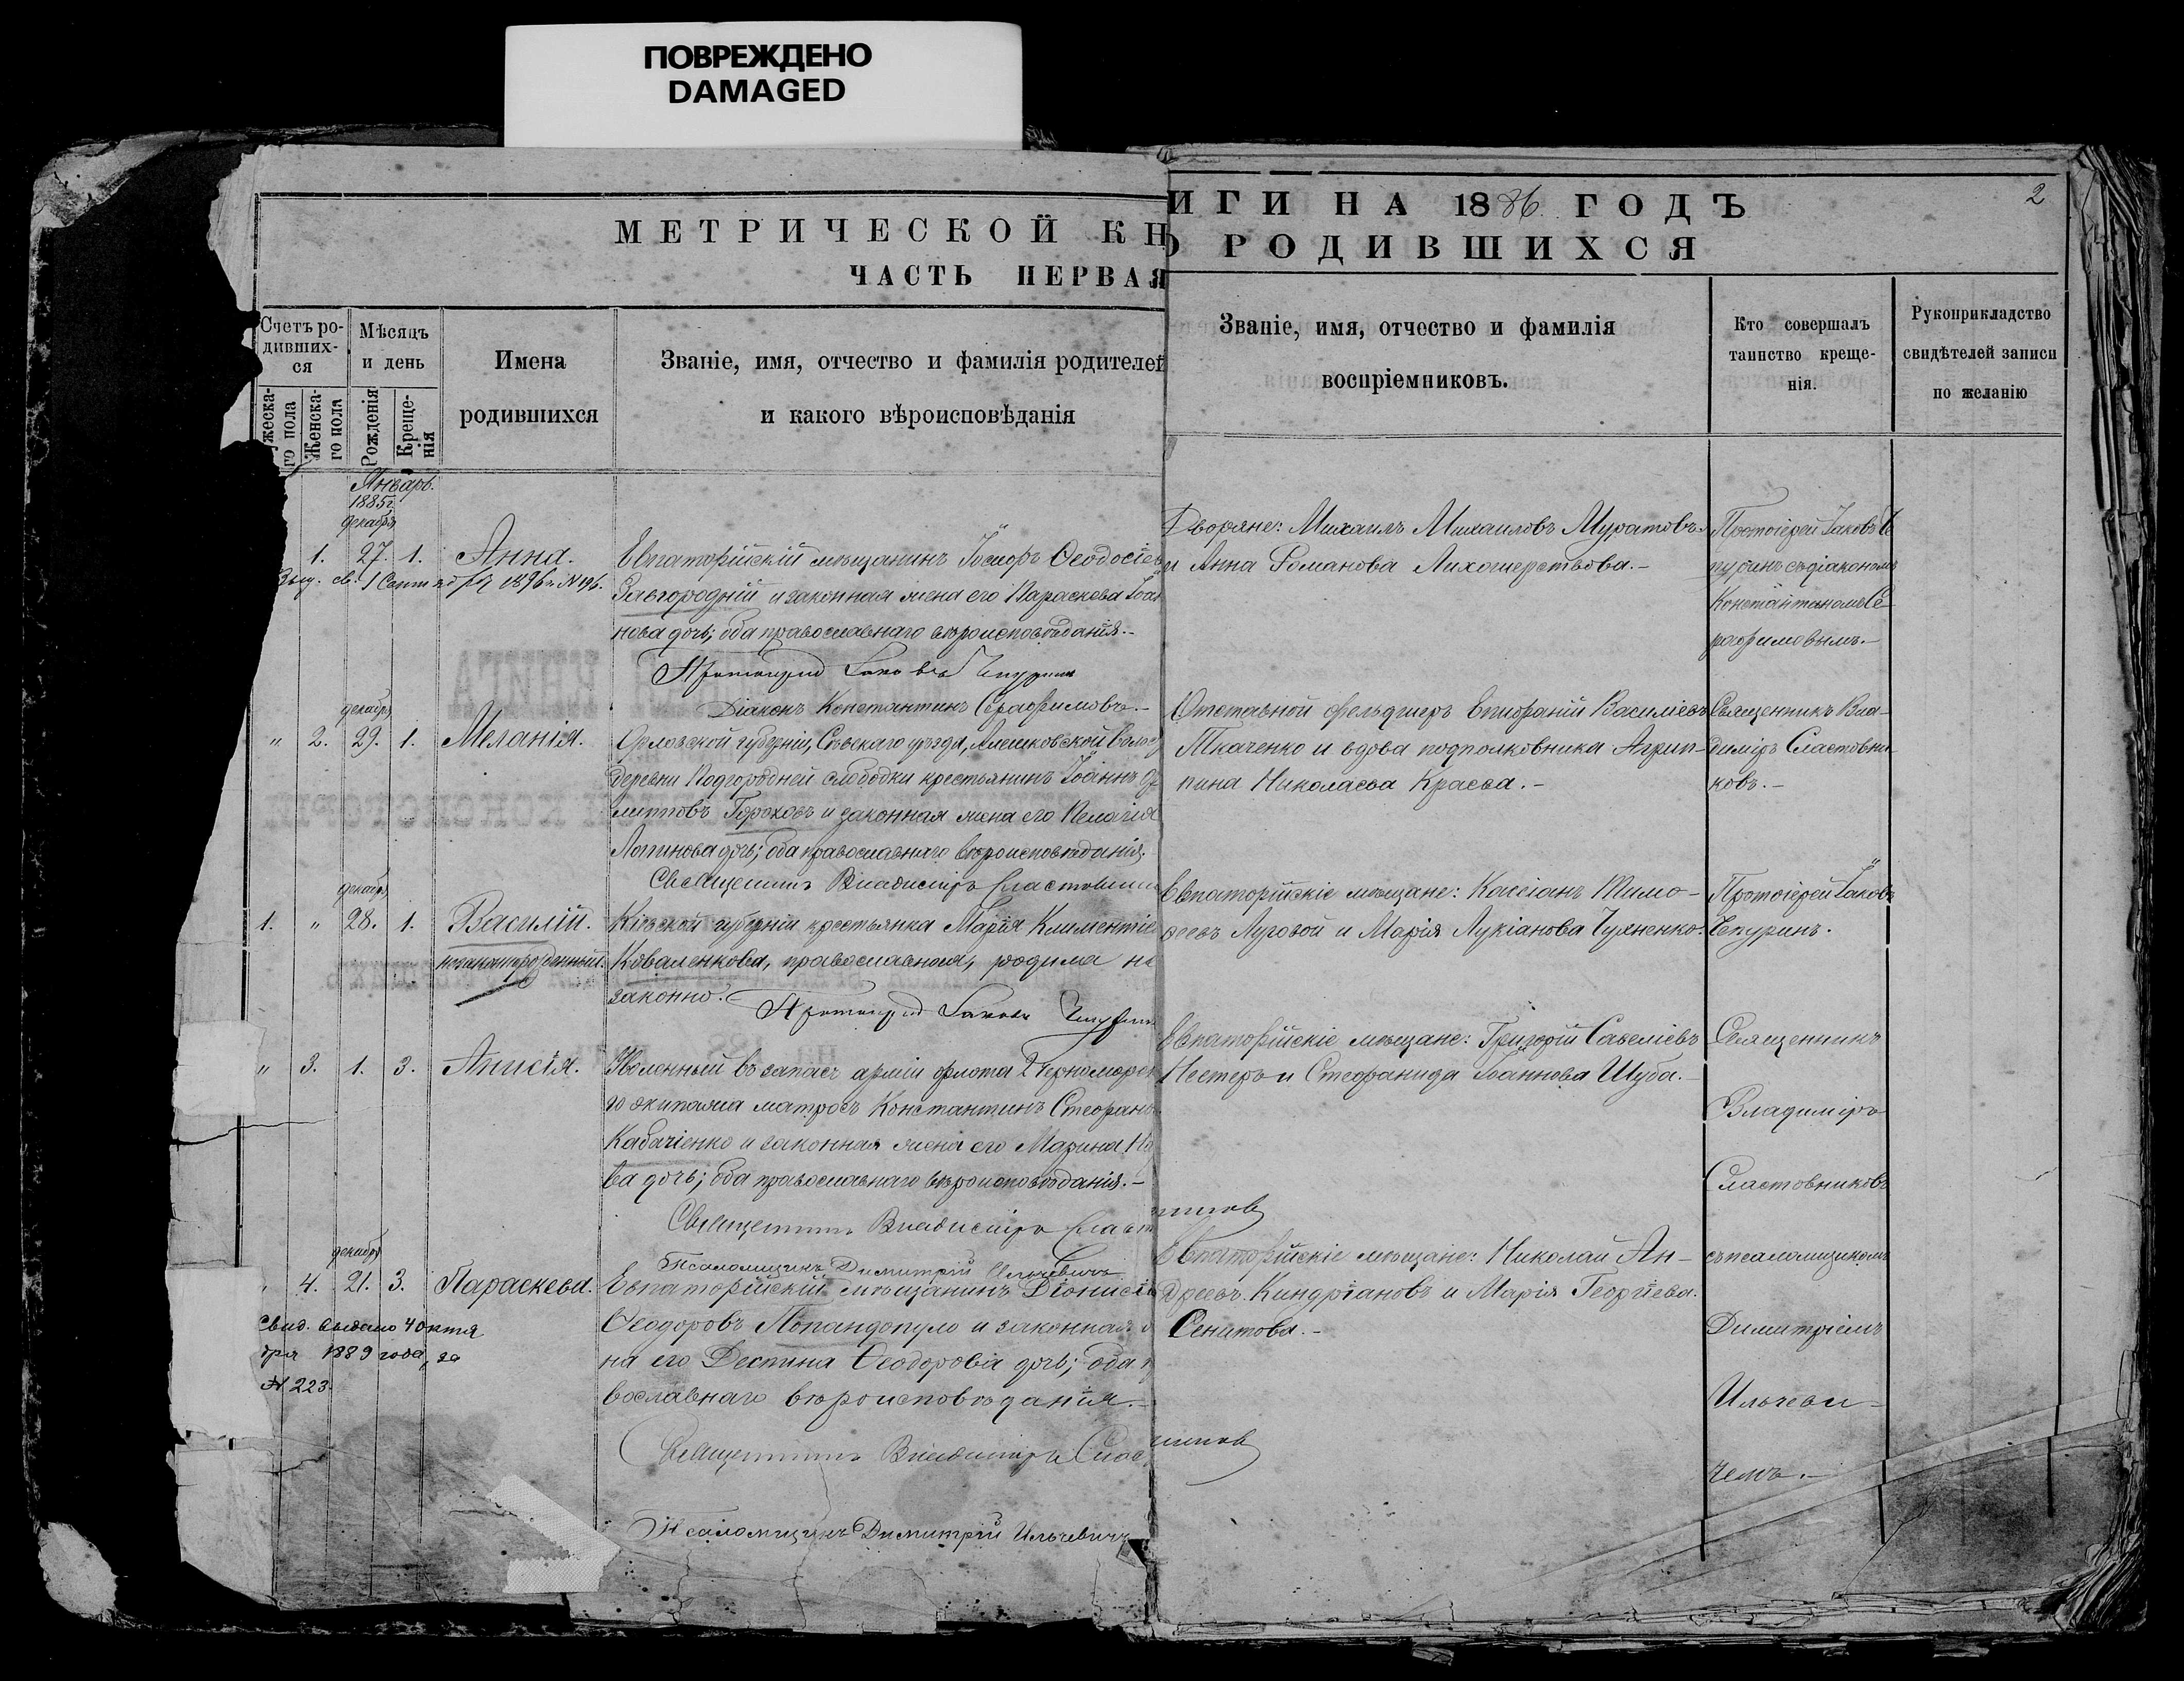 ПОВРЕЖДЕНО
DAMAGED
МЕТРИЧЕСКОЙ КН
ЧАСТЬ ПЕРВАЯ
ИГИ НА 1886 ГОДЪ
О РОДИВШИХСЯ
2
Счетъ ро-
дивших-
ся
Мѣсяцъ
и день
Имена
родившихся
Званіе, имя, отчество и фамилія родителей
и какого вѣроисповѣданія
Женска-
го пола
Рожденія
Креще-
нія
Званіе, имя, отчество и фамилія
воспріемниковъ.
Кто совершалъ
таинство креще-
нія.
Рукоприкладство
свидѣтелей записи
по желанію
Январь.
1885 г.
декабря
1. 27. 1. Анна.
Евпаторійскій мѣщанинъ Іосифъ Ѳеодосіев
Завгородній и законная жена его Параскева Іоан
нова дочь; оба православнаго вѣроисповѣданія.-
Протоіерей Іаковъ Чепуринъ
Діаконъ Константинъ Серафимовъ.-
Дворяне: Михаилъ Михаиловъ Муратовъ
и Анна Романова Лихошерстова.-
Протоіерей Іаковъ Че
пуринъ съ діакономъ
Константиномъ Се
рафимовымъ.-
декабря
" 2. 29. 1. Меланія.
Орловской губерніи, Сѣвскаго уѣзда, Алешковской волос
деревни Подгородней слободки крестьянинъ Іоаннъ
Гороховъ и законная жена его Пелагія
дочь; оба православнаго вѣроисповѣданія.
Священникъ Владиміръ Сластовник
Отставной фельдшеръ Епифаній Василіевъ
Ткаченко и вдова подполковника Агрип-
пина Николаева Краева.-
Священникъ Вла-
диміръ Сластовни-
ковъ.-
декабря
1. " 28. 1. Василій.
незаконнорожденный.
Кіевской губерніи крестьянка Марія Климентіе
Коваленкова, православная, родила не
законно.-
Протоіерей Іаковъ Чепурин
Евпаторійскіе мѣщане: Кассіанъ Тимо-
феевъ Луговой и Марія Лукіанова Чуяненко.
Протоіерей Іаковъ
Чепуринъ.
" 3. 1. 3. Анисія.
Уволенный въ запасъ арміи флота 2 Черноморск
го экипажа матросъ Константинъ Стефанов
Кабаченко и законная жена его Марина
ва дочь; оба православнаго вѣроисповѣданія.-
Священникъ Владиміръ Сласт
никовъ
Псаломщикъ Димитрій Ильчевичъ
Евпаторійскіе мѣщане: Григорій Савеліевъ
Нестеръ и Стефанида Іоаннова Шуба.-
Священникъ
Владиміръ
Сластовниковъ
декабря
" 4. 21. 3. Параскева.
Свид. выдано 4 октя
бря 1889 года, за
№ 223.
Евпаторійскій мѣщанинъ Діонисі
Ѳеодоровъ Попандопуло и законная
на его Деспина Ѳеодорова дочь; оба п
вославнаго вѣроисповѣданія.-
Священникъ Владиміръ Слас
никовъ
Псаломщикъ Димитрій Ильчевичъ
Евпаторійскіе мѣщане: Николай Ан-
дреевъ Киндріановъ и Марія Георгіева
Сенатова.-
съ псаломщикомъ
Димитріемъ
Ильчеви-
чемъ.-